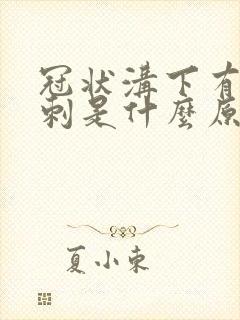 冠状溝下有
刺是什麼原
夏小東